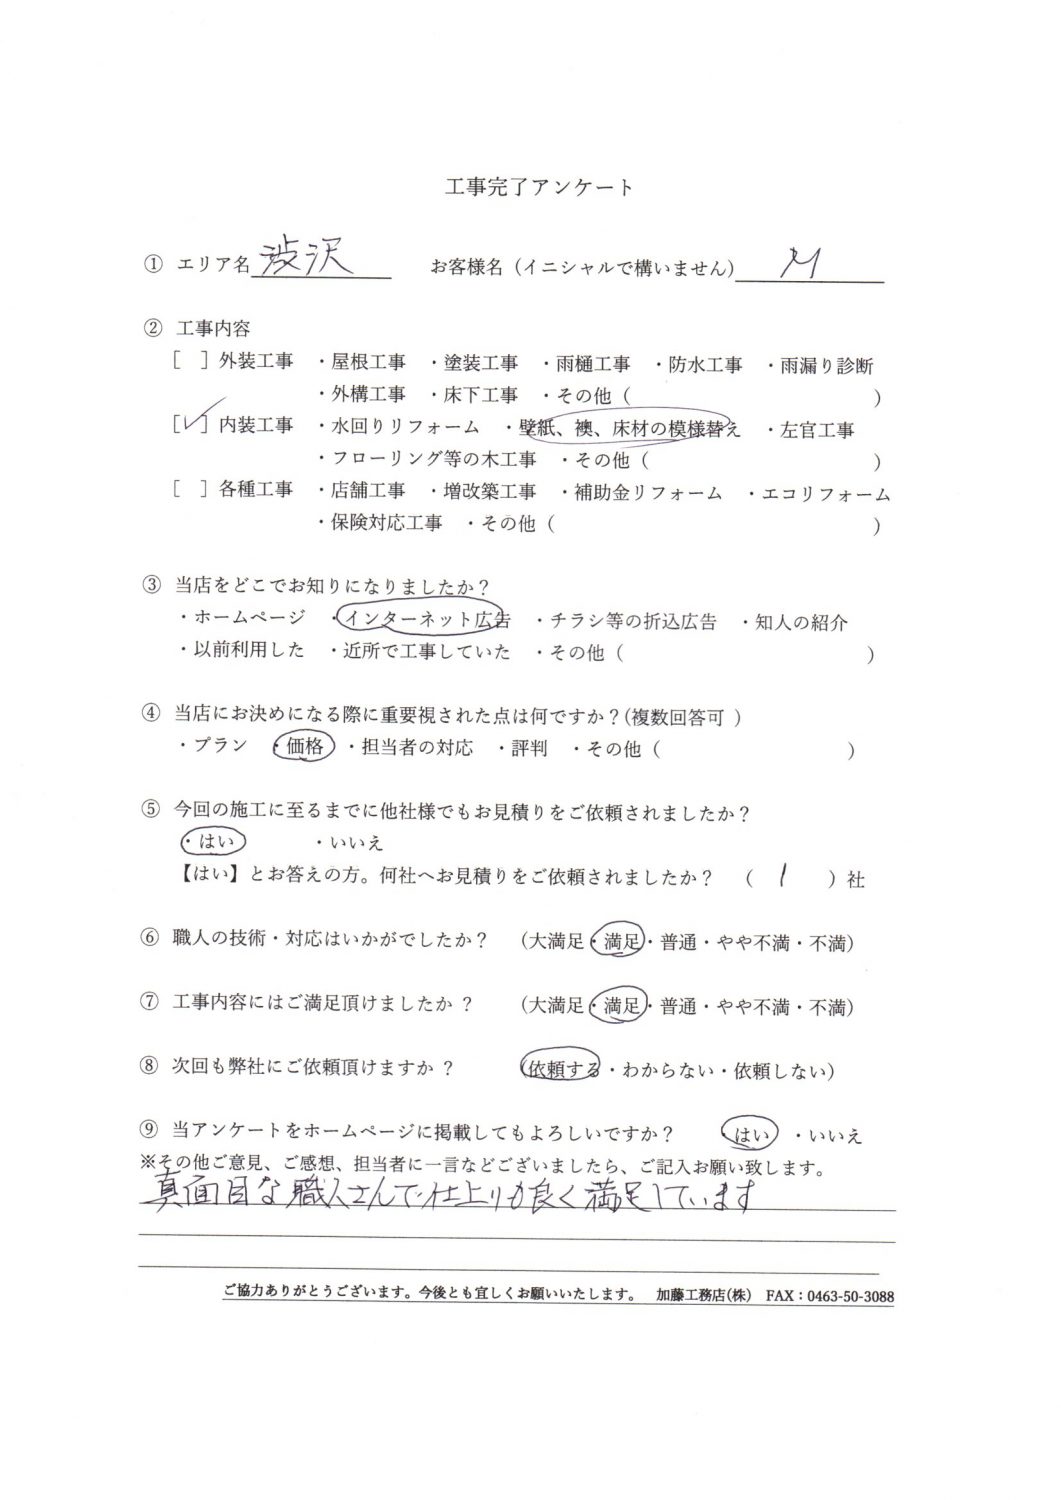 工事完了アンケート
① エリア名 渋沢 お客様名（イニシャルで構いません） M
② 工事内容
［ ］外装工事 ・屋根工事 ・塗装工事 ・雨樋工事 ・防水工事 ・雨漏り診断
・外構工事 ・床下工事 ・その他（ ）
［✓］内装工事 ・水回りリフォーム ・壁紙、襖、床材の模様替え ・左官工事
・フローリング等の木工事 ・その他（ ）
［ ］各種工事 ・店舗工事 ・増改築工事 ・補助金リフォーム ・エコリフォーム
・保険対応工事 ・その他（ ）
③ 当店をどこでお知りになりましたか？
・ホームページ ・インターネット広告 ・チラシ等の折込広告 ・知人の紹介
・以前利用した ・近所で工事していた ・その他（ ）
④ 当店にお決めになる際に重要視された点は何ですか？(複数回答可 ）
・プラン ・価格 ・担当者の対応 ・評判 ・その他（ ）
⑤ 今回の施工に至るまでに他社様でもお見積りをご依頼されましたか？
・はい ・いいえ
【はい】とお答えの方。何社へお見積りをご依頼されましたか？ （ 1 ）社
⑥ 職人の技術・対応はいかがでしたか？ （大満足・満足・普通・やや不満・不満）
⑦ 工事内容にはご満足頂けましたか？ （大満足・満足・普通・やや不満・不満）
⑧ 次回も弊社にご依頼頂けますか？ （依頼する・わからない・依頼しない）
⑨ 当アンケートをホームページに掲載してもよろしいですか？ ・はい ・いいえ
※その他ご意見、ご感想、担当者に一言などございましたら、ご記入お願い致します。
真面目な職人さんで仕上りも良く満足しています
ご協力ありがとうございます。今後とも宜しくお願いいたします。 加藤工務店(株) FAX：0463-50-3088